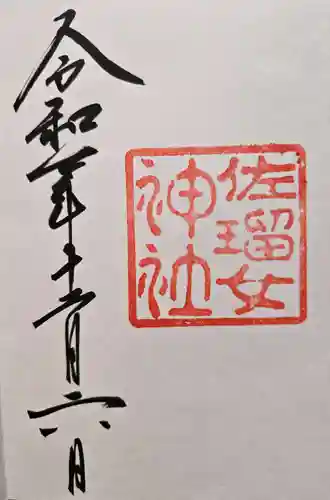 佐瑠女
神社
令和二年十二月六日